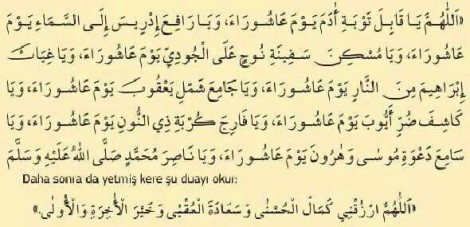 «اَللّٰهُمَّ يَا قَابِلَ تَوْبَةِ اٰدَمَ يَوْمَ عَاشُورَاءَ، وَيَا رَافِعَ إِدْرِيسَ إِلَى السَّمَاءِ يَوْمَ
عَاشُورَاءَ، وَيَا مُسْكِنَ سَفِينَةِ نُوحٍ عَلَى الْجُودِيِّ يَوْمَ عَاشُورَاءَ، وَيَا غِيَاثَ
إِبْرَاهِيمَ مِنَ النَّارِ يَوْمَ عَاشُورَاءَ، وَيَا جَامِعَ شَمْلِ يَعْقُوبَ يَوْمَ عَاشُورَاءَ، وَيَا
كَاشِفَ ضُرِّ أَيُّوبَ يَوْمَ عَاشُورَاءَ، وَيَا فَارِجَ كُرْبَةِ ذِي النُّونِ يَوْمَ عَاشُورَاءَ، وَيَا
سَامِعَ دَعْوَةِ مُوسٰى وَهٰرُونَ يَوْمَ عَاشُورَاءَ، وَيَا نَاصِرَ مُحَمَّدٍ صَلَّى اللّٰهُ عَلَيْهِ وَسَلَّمَ
Daha sonra da yetmiş kere şu duayı okur:
«اَللّٰهُمَّ ارْزُقْنِي كَمَالَ الْحُسْنٰى وَسَعَادَةَ الْعُقْبٰى وَخَيْرَ الْاٰخِرَةِ وَالْأُولٰى.»